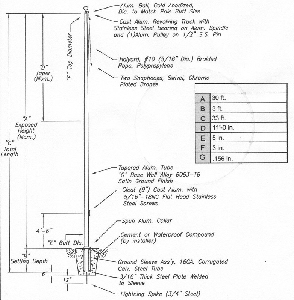 Alum. Ball, Gold Anodized,
Dia. to Match Pole Butt Size
Cast Alum. Revolving Truck with
Stainless Steel Bearing on Alum. Spindle
and (1) Alum. Pulley on 1/2" S.S. Pin
"F" Top Diameter
"D"
Taper
(Nom.)
Halyard, #10 (5/16" Dia.) Braided
Rope, Polypropylene
Two Snaphooks, Swivel, Chrome
Plated Bronze
"A"
Exposed
Height
(Nom.)
"C"
Total
Length
A 30 ft.
B 3 ft.
C 33 ft.
E 5 in.
F 3 in.
G .156 in.
Tapered Alum. Tube
"G" Base Wall Alloy 6063-T6
Satin Ground Finish
Cleat (9") Cast Alum. with
Steel Screws
Spun Alum. Collar
4'-6"
"E" Butt Dia.
Cement or Waterproof Compound
(by Installer)
"B"
Setting Depth
Ground Sleeve Ass'y. 16GA. Corrugated
Galv. Steel Tube
3/16" Thick Steel Plate Welded
to Sleeve
6"
Lightning Spike (3/4" Steel)